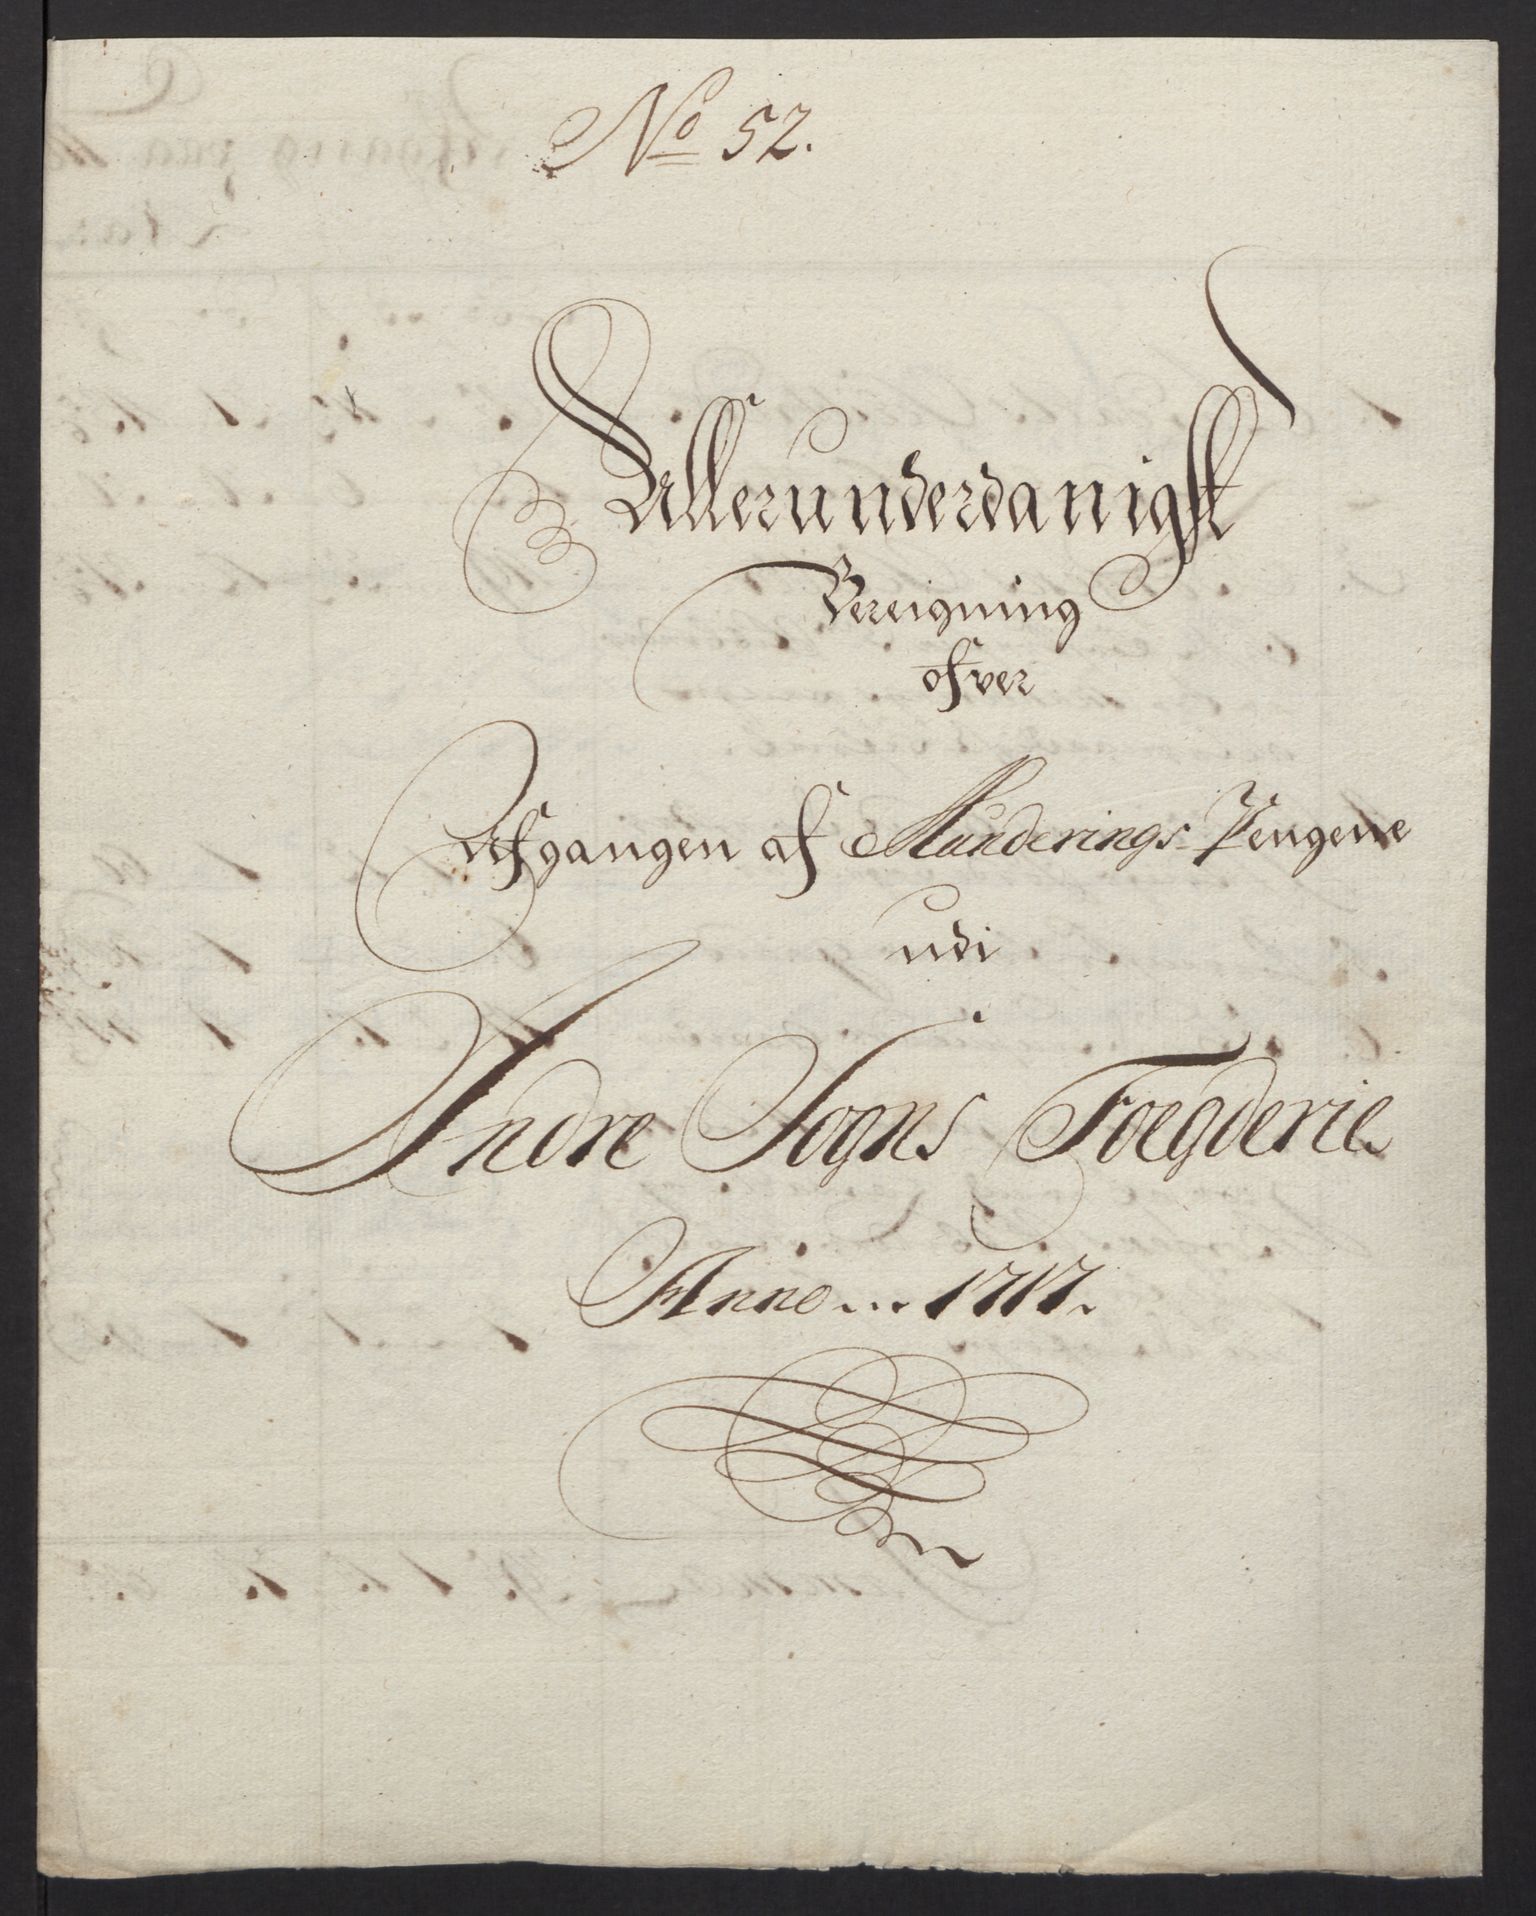 No 52.
Allerunderdanigst
Bereigning
ofver
Afgangen af Munderings Pengene
udi
Indre Sogns Foegderie
Anno... 1717.